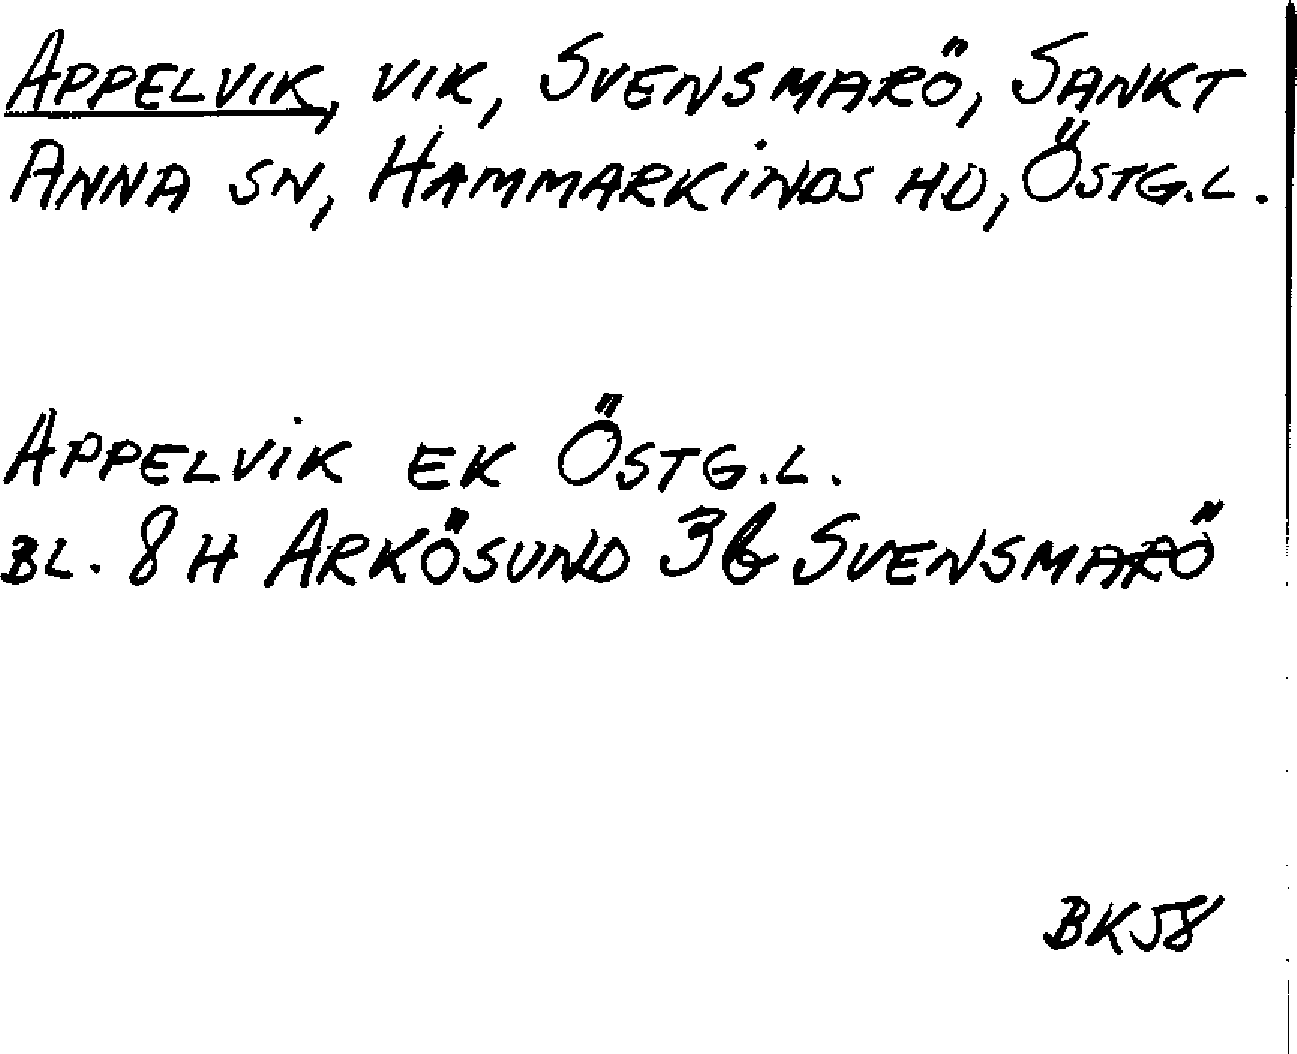 APPELVIK, VIK, SVENSMARÖ, SANKT
ANNA SN, HAMMARKINDS HD, ÖSTG.L.
APPELVIK EK ÖSTG.L.
BL. 8 H ARKÖSUND 3 b SVENSMARÖ
BK58